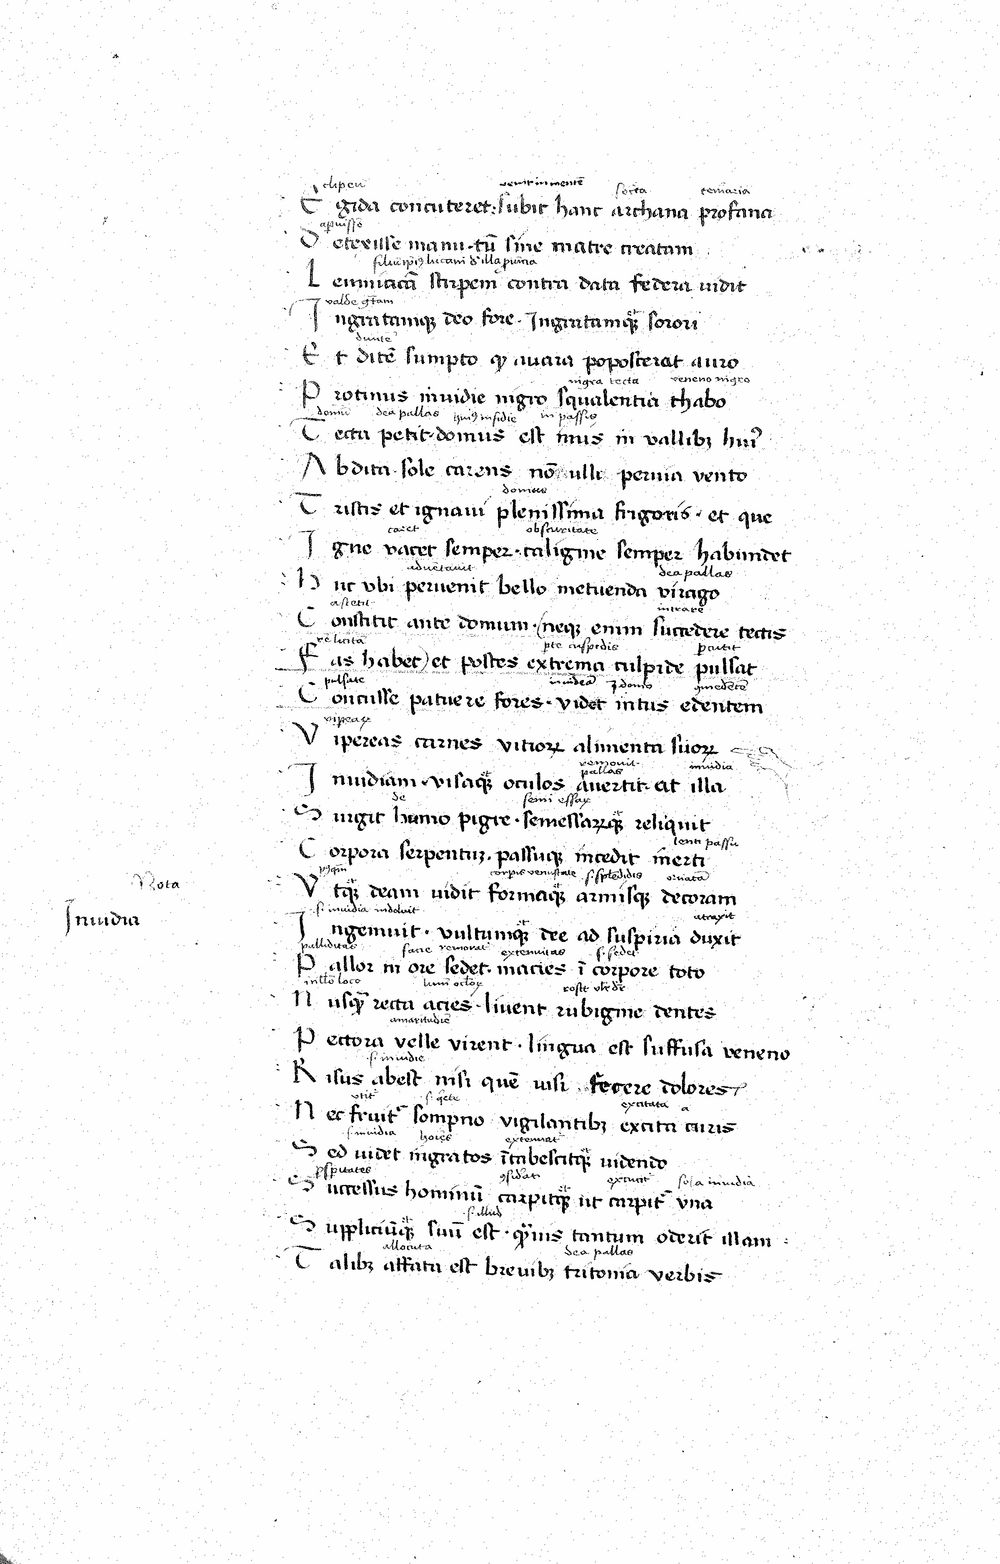 clipeū venit in mentē secta temāria
E gida concuteret: subit hanc archana profana
apuisse
D etexisse manu · tū sine matre creatam
L emnicacā stirpem contra data federa vidit
valde gͣtam
I ngratamqꝫ deo fore · Ingratamqꝫ sorori
E t ditē sumpto qͥ avara poposcerat auro
nigra tecta veneno nigro
P rotinus invidie nigro squalentia thabo
domū dea pallas huiꝰ insidie
T ecta petit · domus est imis in vallibꝫ huiꝰ
A bdita · sole carens nō ulli pervia vento
domus
T ristis et ignavi plenissima frigoris · et que
caret obscuritate
I gne vacet semper · caligine semper habundet
advētavit dea pallas
H uc vbi pervenit bello metuenda virago
astetit intrare
C onstitit ante domum · (neqꝫ enim succedere tectis
pte cuspidis pcutit
F as habet) et postes extrema cuspide pulsat
pulsate ꝯmedētē
C oncusse patuere fores · videt intus edentem
V ipereas carnes vitioꝝ alimenta suoꝝ
removit pallas invidia
I nvidiam · visaqꝫ oculos avertit · at illa
de semi essaꝝ
S urgit humo pigre · semessaꝝqꝫ reliquit
lenti passu
C orpora serpentuꝫ · passuqꝫ incedit inerti
Nota corpis venustate s. splēdidis ornatā
V tqꝫ deam vidit formaqꝫ armisqꝫ decoram
Invidia
s. invidia indoluit atraxit
I ngemuit · vultumqꝫ dee ad suspiria duxit
palliditas facie remorat extenuitas s. sedet
P allor in ore sedet · macies ī corpore toto
in llō loco
N usqͣ recta acies · livent rubigine dentes
amaritudīe
P ectora velle virent · lingua est suffusa veneno
s. invidie
R isus abest nisi quē visi fecere dolores
vtit excitata a
N ec fruitͬ sompno vigilantibꝫ excita curis
s. invidia hoīēs extenuat
S ed videt ingratos ītabescitqꝫ videndo
pspitates sola invidia
S uccessus hominū carpitqꝫ ut carpitͬ vna
s. illud
S uppliciūqꝫ suū est · qͣvis tantum oderit illam
allocuta dea pallas
T alibꝫ affata est brevibꝫ tritonia verbis